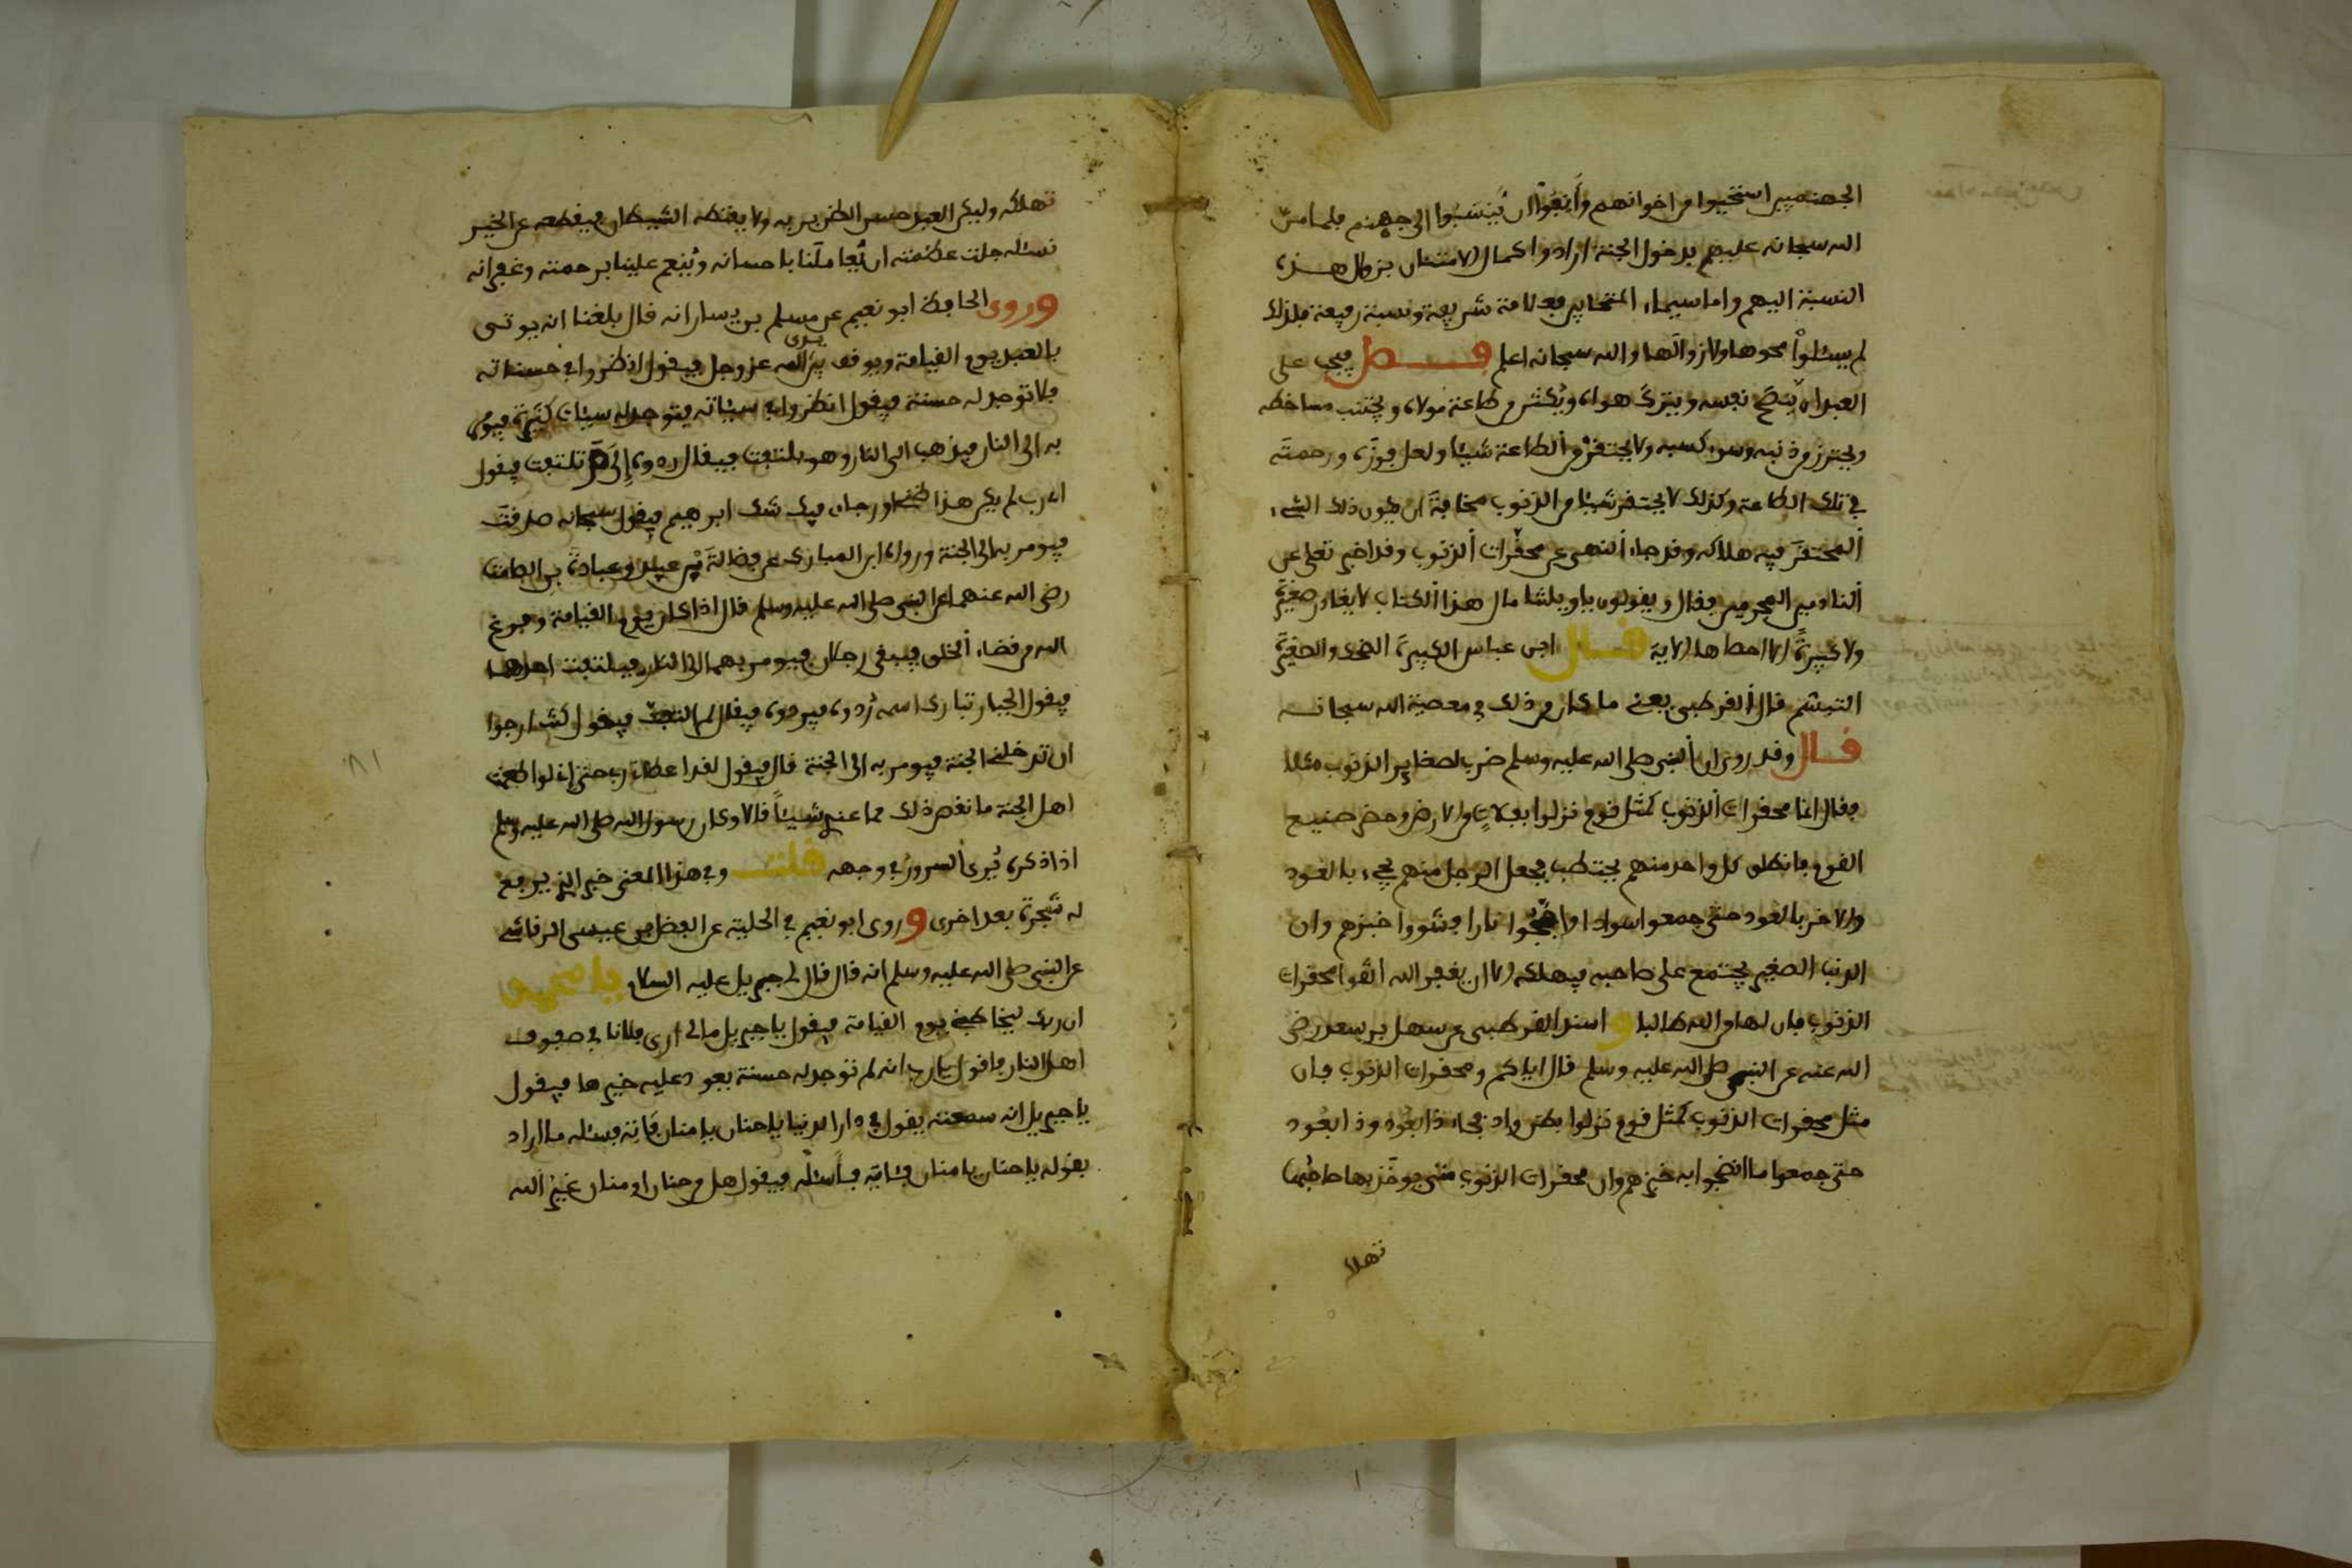 الجهنميين استحيوا من اخوانهم وأَنِفُوا ان يُنسَبُوا الى جهنم فلما منّ
الله سبحانه عليهم بدخول الجنة ارادوا كمال الامتنان بزوال هذه
النسبة اليهم واما سيماء المتحابين فعلامة شريفة ونسبة رفيعة فلذلك
لم يسئلوا محوها ولا زوالها والله سبحانه اعلم فصل فيجب على
العبد ان ينصح نفسه ويترك هواه ويُكثر من طاعة مولاه ويجتنب مساخطه
ويحترز من ذنبه وسوء كسبه ولا يحتقر من الطاعة شيئا ولعل فوزَه ورحمتَه
في تلك الطاعة وكذلك لا يحتقر شيئا من الذنوب مخافةَ ان يكون ذلك الشيء
المحتقَر فيه هلاكه وقد جاء النهي عن محقّرات الذنوب وقد اخبر تعلى عن
النادمين المجرمين فقال ويقولون ياويلتنا مال هذا الكتاب لا يغادر صغيرةً
ولا كبيرةً الا احصاها الاية قال ابن عباس الكبيرة الضحك والصغيرة
التبسّم قال القرطبي يعني ما كان من ذلك في معصية الله سبحانه
قال وقد روي ان النبي صلى الله عليه وسلم ضرب لصغاير الذنوب مثلا
فقال انما محقرات الذنوب كمثل قوم نزلوا بفلاةٍ من الارض وحضر صنيع
القوم فانطلق كل واحد منهم يحتطب فجعل الرجل منهم يجيء بالعود
والاخر بالعود حتى جمعوا سوادا واجّجوا نارا فشووا خبزهم وان
الذنب الصغير يجتمع على صاحبه فيهلكه الا ان يغفر الله اتقوا محقرات
الذنوب فان لها من الله طالبا واسند القرطبي عن سهل بن سعد رضي
الله عنه عن النبي صلى الله عليه وسلم قال اياكم ومحقرات الذنوب فان
مثل محقرات الذنوب كمثل قوم نزلوا بطن واد فجاء ذا بعُود وذا بعُود
حتى جمعوا ما انضجوا به خبزهم وان محقرات الذنوب متى يوخذ بها صاحبُها
تهلا
تهلكه وليكن العبد حسن الظن بربه ولا يقنطه الشيطان فيقطعه عن الخير
نسئله جلت عظمته ان يُعاملَنا باحسانه ويُنعم علينا برحمته وغفرانه
وروى الحافظ ابو نعيم عن مسلم بن يسار انه قال بلغنا انه يوتى
بالعبد يوم القيامة ويوقف بين يدى الله عز وجل فيقول انظروا في حسناته
فلا توجد له حسنة فيقول انظروا في سيئاته فيتوجد له سيئات كثيرة فيومر
به الى النار فيذهب الى النار وهو يلتفت فيقال ردوه إلى لم تلتفت فيقول
اي رب لم يكن هذا ظني او رجاى فيك شك ابرهيم فيقول سبحانه صدقت
فيومر به الى الجنة ورواه ابن المبارك عن فضالةَ بن عبيد وعبادة بن الصامت
رضي الله عنهما عن النبي صلى الله عليه وسلم قال اذا كان يوم القيامة وفرغ
الله من قضاء الخلق فيبقى رجلان فيومر بهما الى النار فيلتفت احدهما
فيقول الجبار تبارك اسمه رُدوه فيردوه فيقال لم التفت فيقول كنت ارجوا
ان تدخلني الجنة فيومر به الى الجنة قال فيقول لقد اعطاني ربي حتى اني لو اطعمت
اهل الجنة ما نقص ذلك مما عندي شيئاً قالا وكان رسول الله صلى الله عليه وسلم
اذا ذكره يُرى السرور في وجهه قلت وفي هذا المعنى خبر الذي يرفع
له شجرة بعد اخرى وروى ابو نعيم في الحلية عن الفضل بن عيسى الرقاشي
عن النبي صلى الله عليه وسلم انه قال قال لي جبريل عليه السلام يا محمد
ان ربك ليخاطبني يوم القيامة فيقول يا جبريل مالي ارى فلانا في صفوف
اهل النار فاقول يارب انه لم توجد له حسنة يعود عليه خيرها فيقول
يا جبريل انه سمعته يقول في دار الدنيا يا حنان يا منان فاته فسئله ما اراد
بقوله يا حنان يا منان فئاتيه فأسئله فيقول هل من حنان او منان غير الله